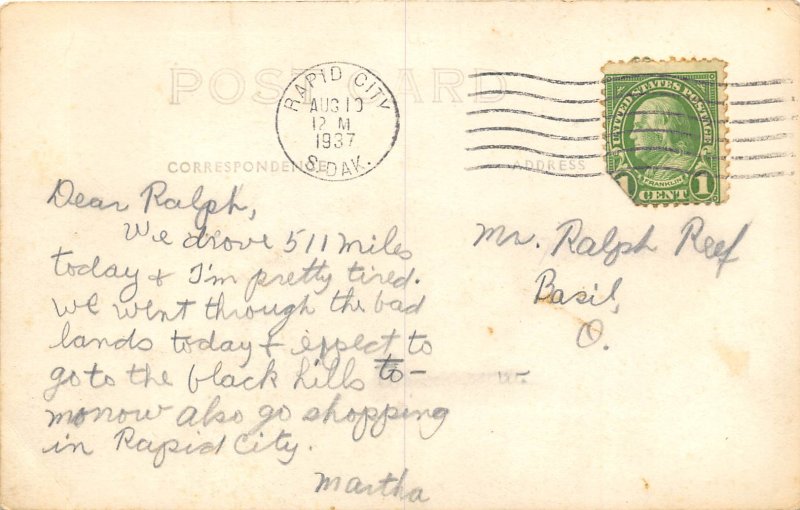 POST CARD
RAPID CITY
AUG 10
12 M
1937
S. DAK.
UNITED STATES POSTAGE
FRANKLIN
1 CENT 1
CORRESPONDENCE
ADDRESS
Dear Ralph,
We drove 511 miles
today & I'm pretty tired.
We went through the bad
lands today & expect to
go to the black hills to-
morrow also go shopping
in Rapid City.
Martha
Mr. Ralph Reef
Basil,
O.